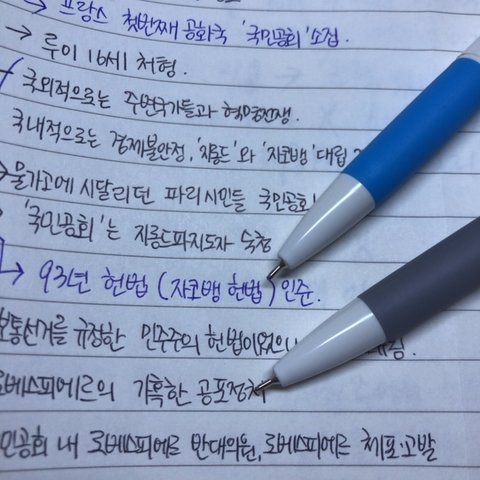 → 프랑스 첫번째 공화국 '국민공회' 소집.
→ 루이 16세 처형.
국외적으로는 주변국가들과 혁명전쟁.
국내적으로는 경제불안정, '지롱드'와 '자코뱅' 대립
→ 물가고에 시달리던 파리시민들 국민공회
'국민공회'는 지롱드파지도자 숙청
→ 93년 헌법 (자코뱅 헌법) 인준.
보통선거를 규정한 민주주의 헌법이었으나
로베스피에르의 가혹한 공포정치
민공회 내 로베스피에르 반대의원, 로베스피에르 체포·고발